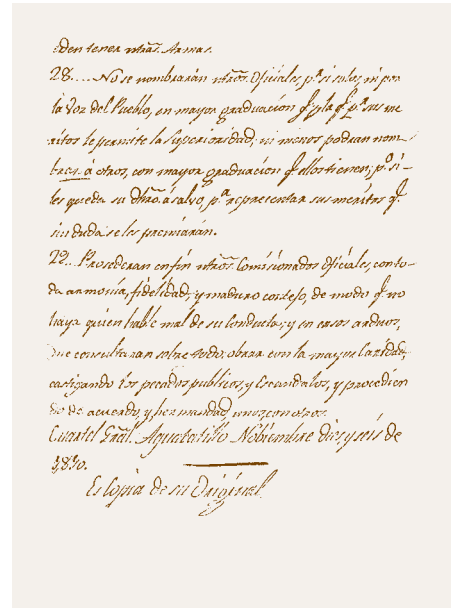 eden tener ntras. Armas.
28.... No se nombrarán ntros. Oficiales, pr. si solos, ni por
la Voz del Pueblo, en mayor graduacion q. p. la q. pr. sus me
ritos le permite la Superioridad, ni menos podran nom-
brar á otros, con mayor graduacion q. ellos tienen; po. si-
les queda su dhro. á salvo, pa. representar sus meritos q.
sin duda se les premiaran.
29.. Prosederan enfin ntros. Comisionados Oficiales, con to-
da armonía, fidelidad, y maduro consejo, de modo q. no
haya quien hable mal de su Conducta; y en casos arduos,
que consultaran sobre todo, obrar con la mayor Caridad,
castigando los pecados publicos, y Escandalos, y procedien
do de acuerdo, y hermandad, unos con otros.
Cuartel Gral. Aguacatillo Nobiembre dies y seis de
1,810.
Es Copia de su Original.